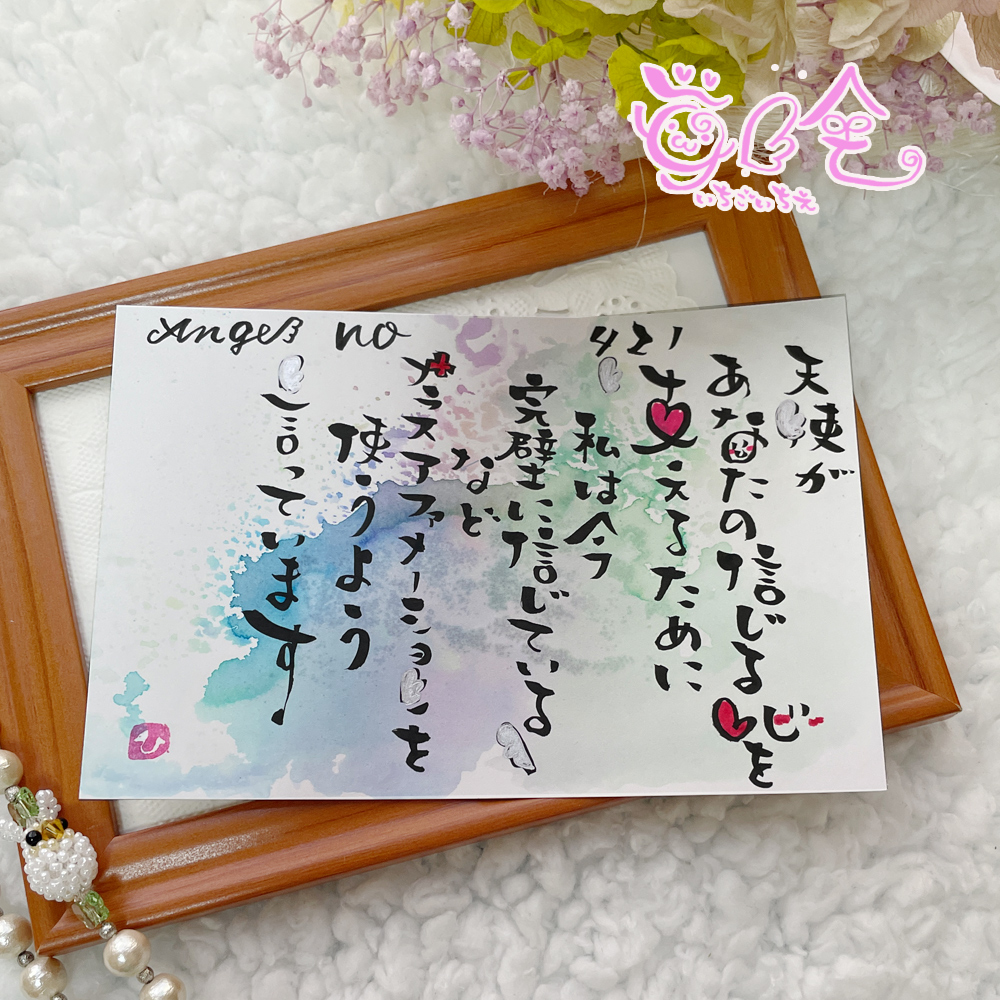 Angel no
421
天使が
あなたの信じる心を
支えるために
私は今
完璧に信じている
など
プラスアファメーションを
使うよう
言っています
いちごいちえ